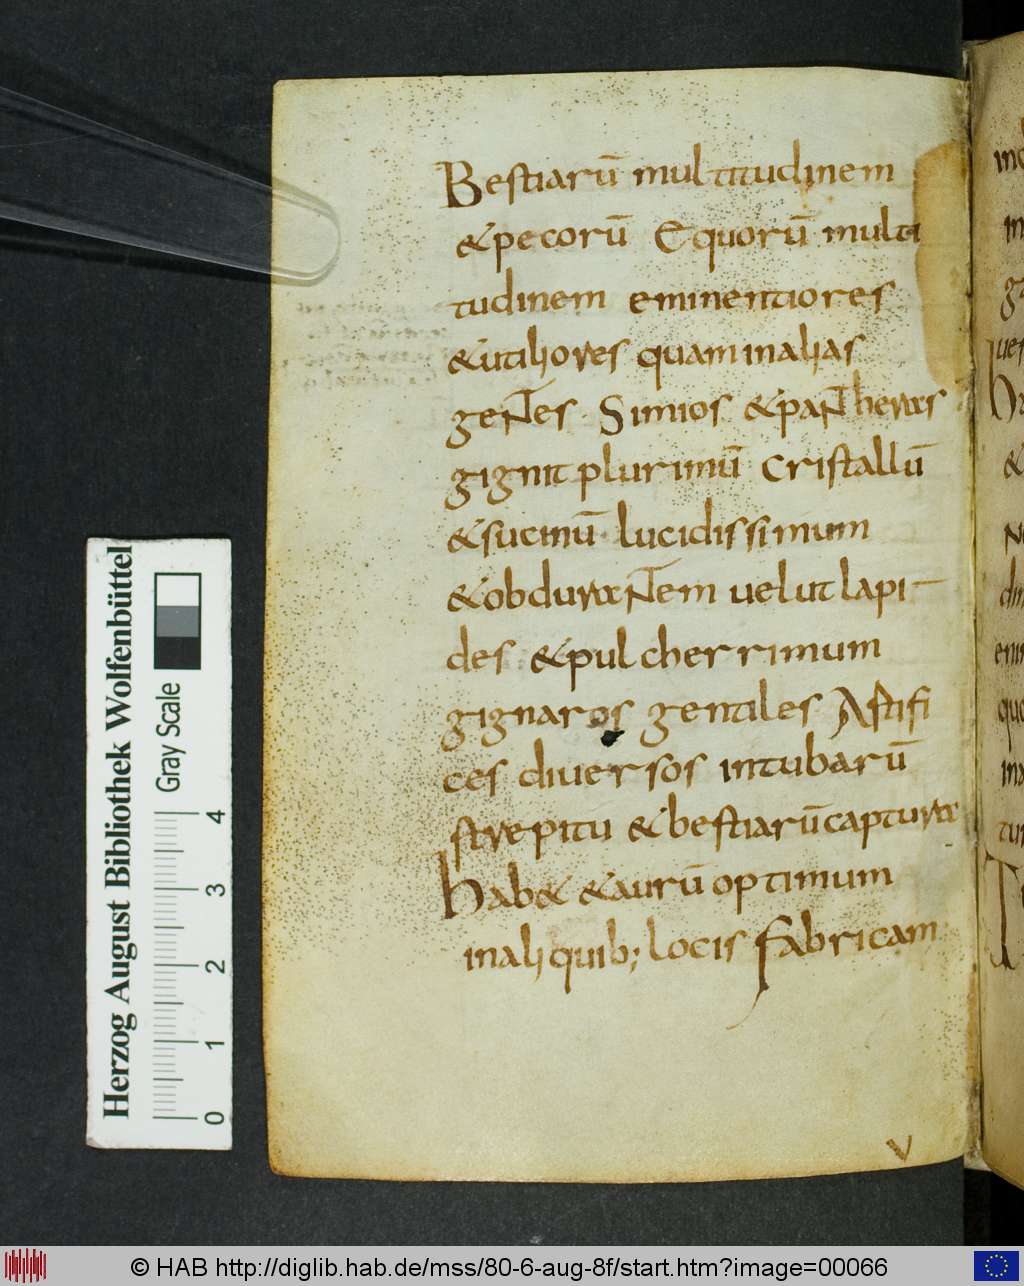 Bestiarū multitudinem
& pecorū Equorū multi
tudinem eminentiores
& utiliores quam in alias
gentes · Simios & pantheras
gignit plurimū Cristallū
& sucinū lucidissimum
& obdurantem uelut lapi
des & pulcherrimum
gignaros gentiles Astifi
ces diuersos intubarū
strepitu & bestiarū captura
hab& & aurū optimum
in aliquib; locis fabricam
V
Herzog August Bibliothek Wolfenbüttel
Gray Scale
0 1 2 3 4
© HAB http://diglib.hab.de/mss/80-6-aug-8f/start.htm?image=00066